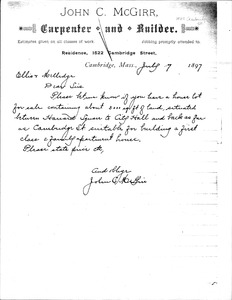 JOHN C. McGIRR,
Carpenter and Builder.
Estimates given on all classes of work. Jobbing promptly attended to.
Residence, 1522 Cambridge Street,
Cambridge, Mass., July 7 1897
Ellis & Melledge
Dear Sir
Please let me know if you have a house lot
for sale containing about 2000 ft of land, situated
between Harvard Square & City Hall and back as far
as Cambridge St suitable for building a first
class 2 family apartment house.
Please state price &c,
And Oblige
John C. McGirr